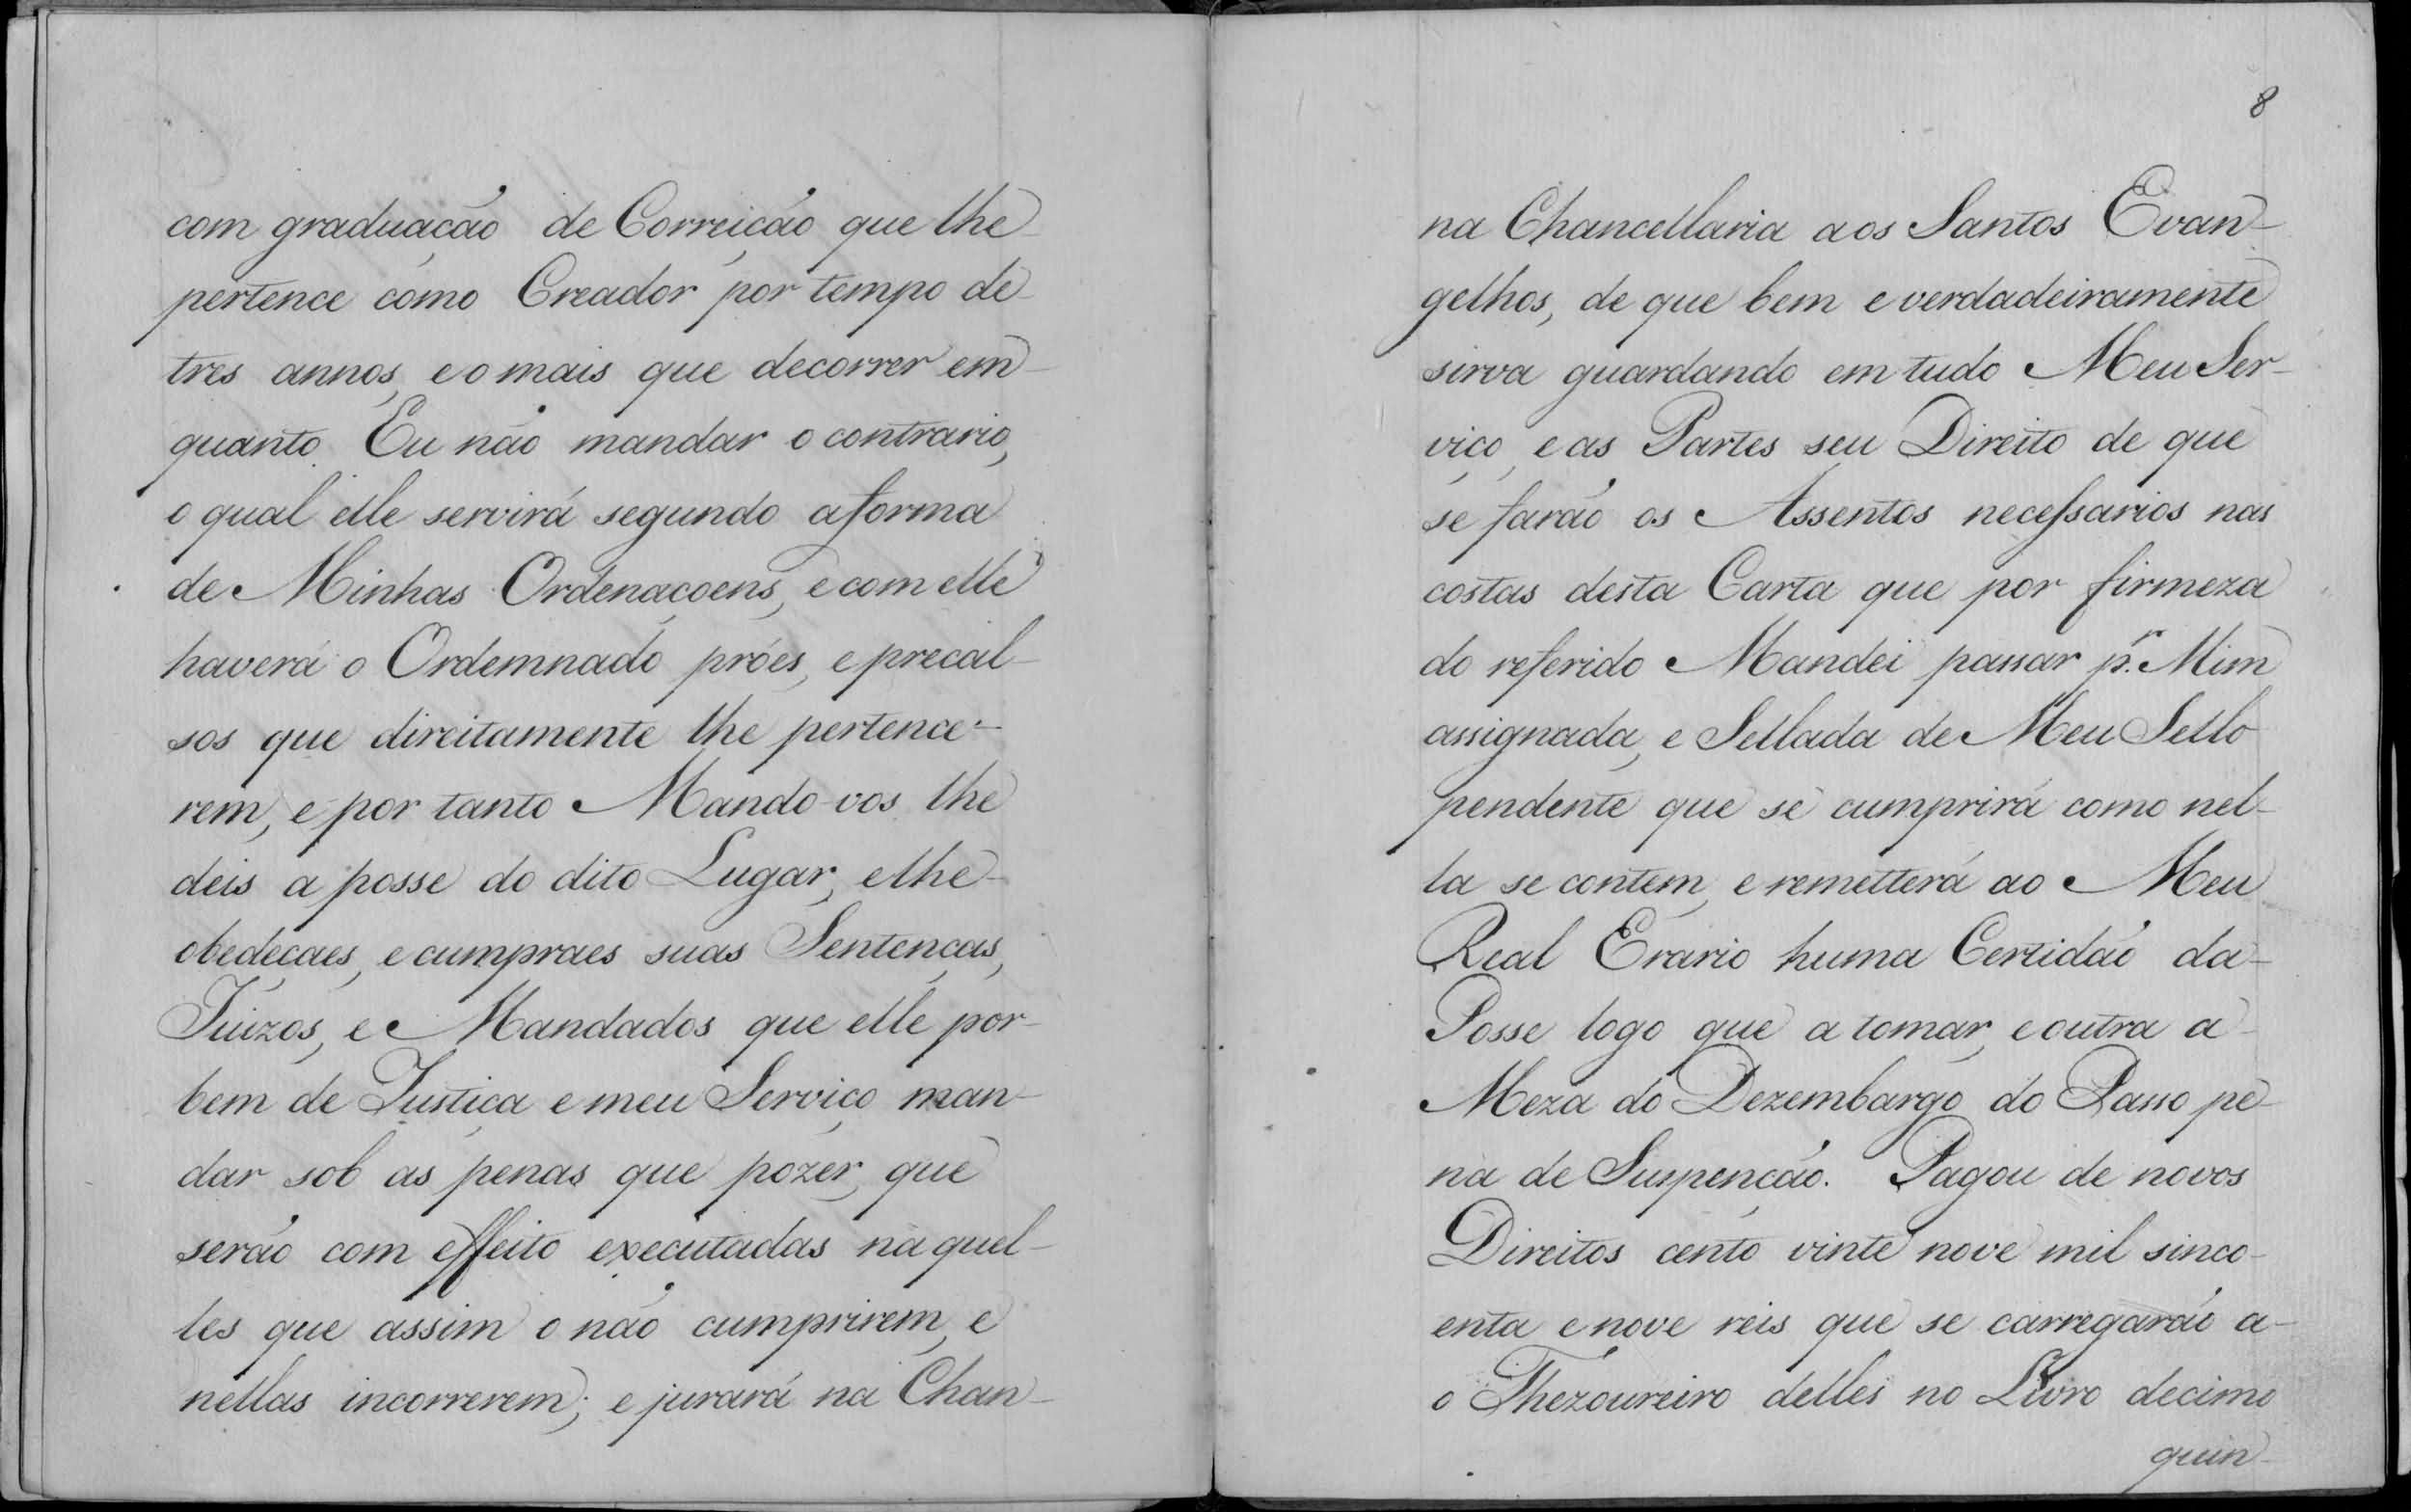 com graduação de Correição que lhe
pertence como Creador por tempo de
tres annos, e o mais que decorrer em
quanto Eu não mandar o contrario,
o qual elle servirá segundo a forma
de Minhas Ordenaçoens, e com elle
haverá o Ordemnado próes, e precal-
sos que direitamente lhe pertence-
rem, e por tanto Mando-vos lhe
deis a posse do dito Lugar, e lhe
obedeçaes, e cumpraes suas Sentenças,
Juizos, e Mandados que elle por
bem de Justiça e meu Serviço man-
dar sob as penas que pozer, que
serão com effeito executadas naquel-
les que assim o não cumprirem, e
nellas incorrerem; e jurará na Chan-
8
na Chancellaria aos Santos Evan-
gelhos, de que bem e verdadeiramente
sirva guardando em tudo Meu Ser-
viço, e as Partes seu Direito de que
se farão os Assentos necessarios nas
costas desta Carta que por firmeza
do referido Mandei passar p.r Mim
assignada, e Sellada de Meu Sello
pendente que se cumprirá como nel-
la se contem, e remetterá ao Meu
Real Erario huma Certidão da
Posse logo que a tomar, e outra a
Meza do Dezembargo do Passo pe-
na de Suspenção. Pagou de novos
Direitos cento vinte nove mil sinco-
enta e nove reis que se carregarão a-
o Thezoureiro delles no Livro decimo
quin-